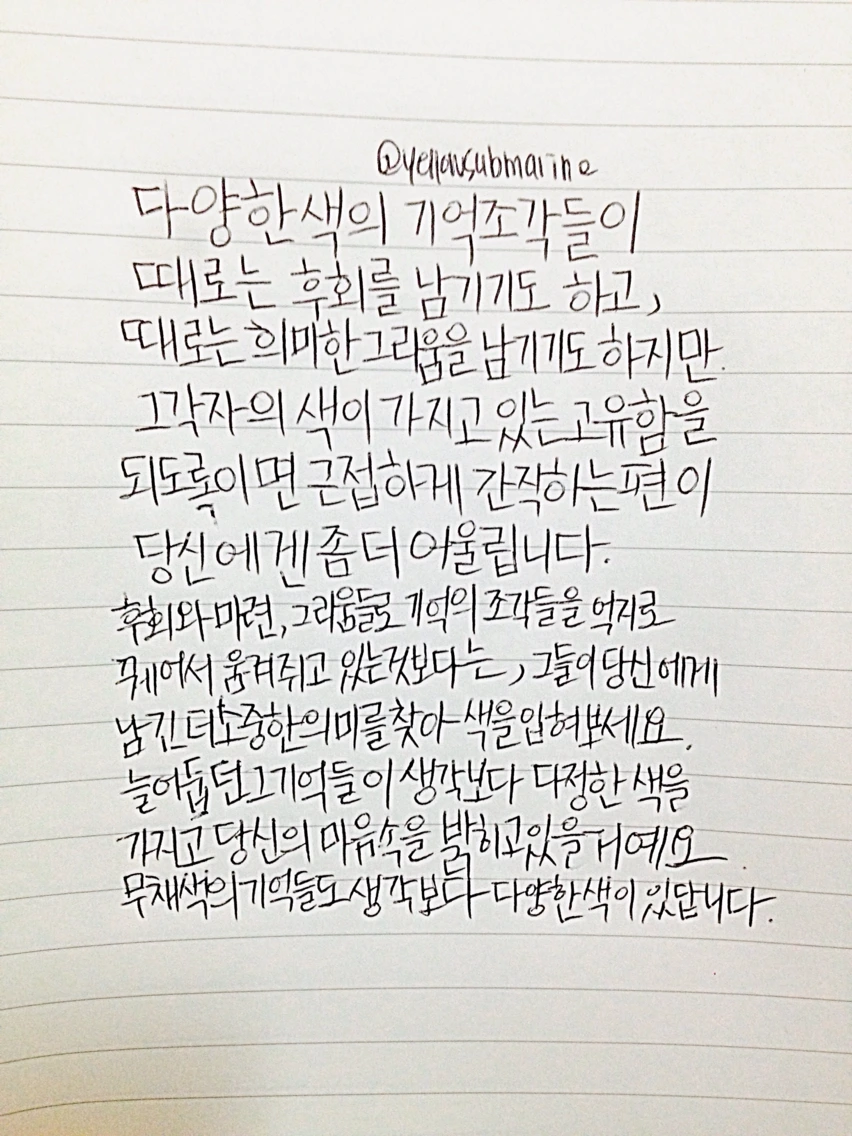 @yellowsubmarine
다양한 색의 기억조각들이
때로는 후회를 남기기도 하고,
때로는 희미한 그리움을 남기기도 하지만.
그 각자의 색이 가지고 있는 고유함을
되도록이면 근접하게 간직하는 편이
당신에겐 좀 더 어울립니다.
후회와 미련, 그리움들로 기억의 조각들을 억지로
꿰어서 움켜쥐고 있는것보다는, 그들이 당신에게
남긴 더 소중한 의미를 찾아 색을 입혀보세요.
늘 어둡던 그 기억들이 생각보다 다정한 색을
가지고 당신의 마음속을 밝히고 있을 거예요.
무채색의 기억들도 생각보다 다양한 색이 있답니다.